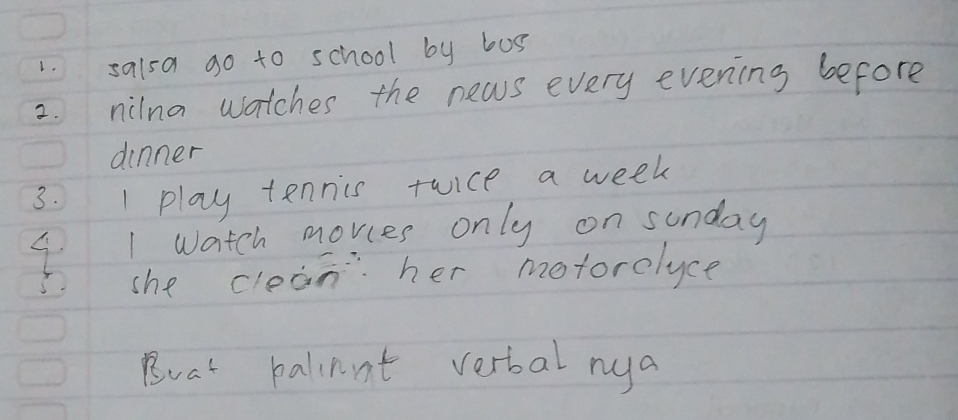 1. salsa go to school by bus
2. nilna watches the news every evening before
dinner
3. I play tennis twice a week
4. I watch movies only on sunday
5. she clean her motorclyce
Buat verbal nya